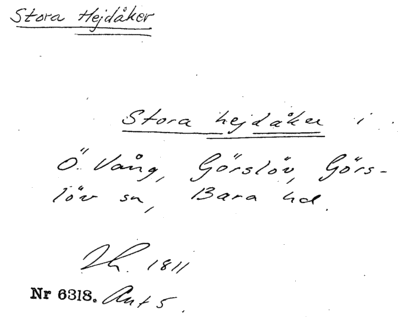 Stora Hejdåker
Stora hejdåker i
Ö. Vång, Görslöv, Görs-
löv sn, Bara hd.
1811
Nr 6318. Ant 5.